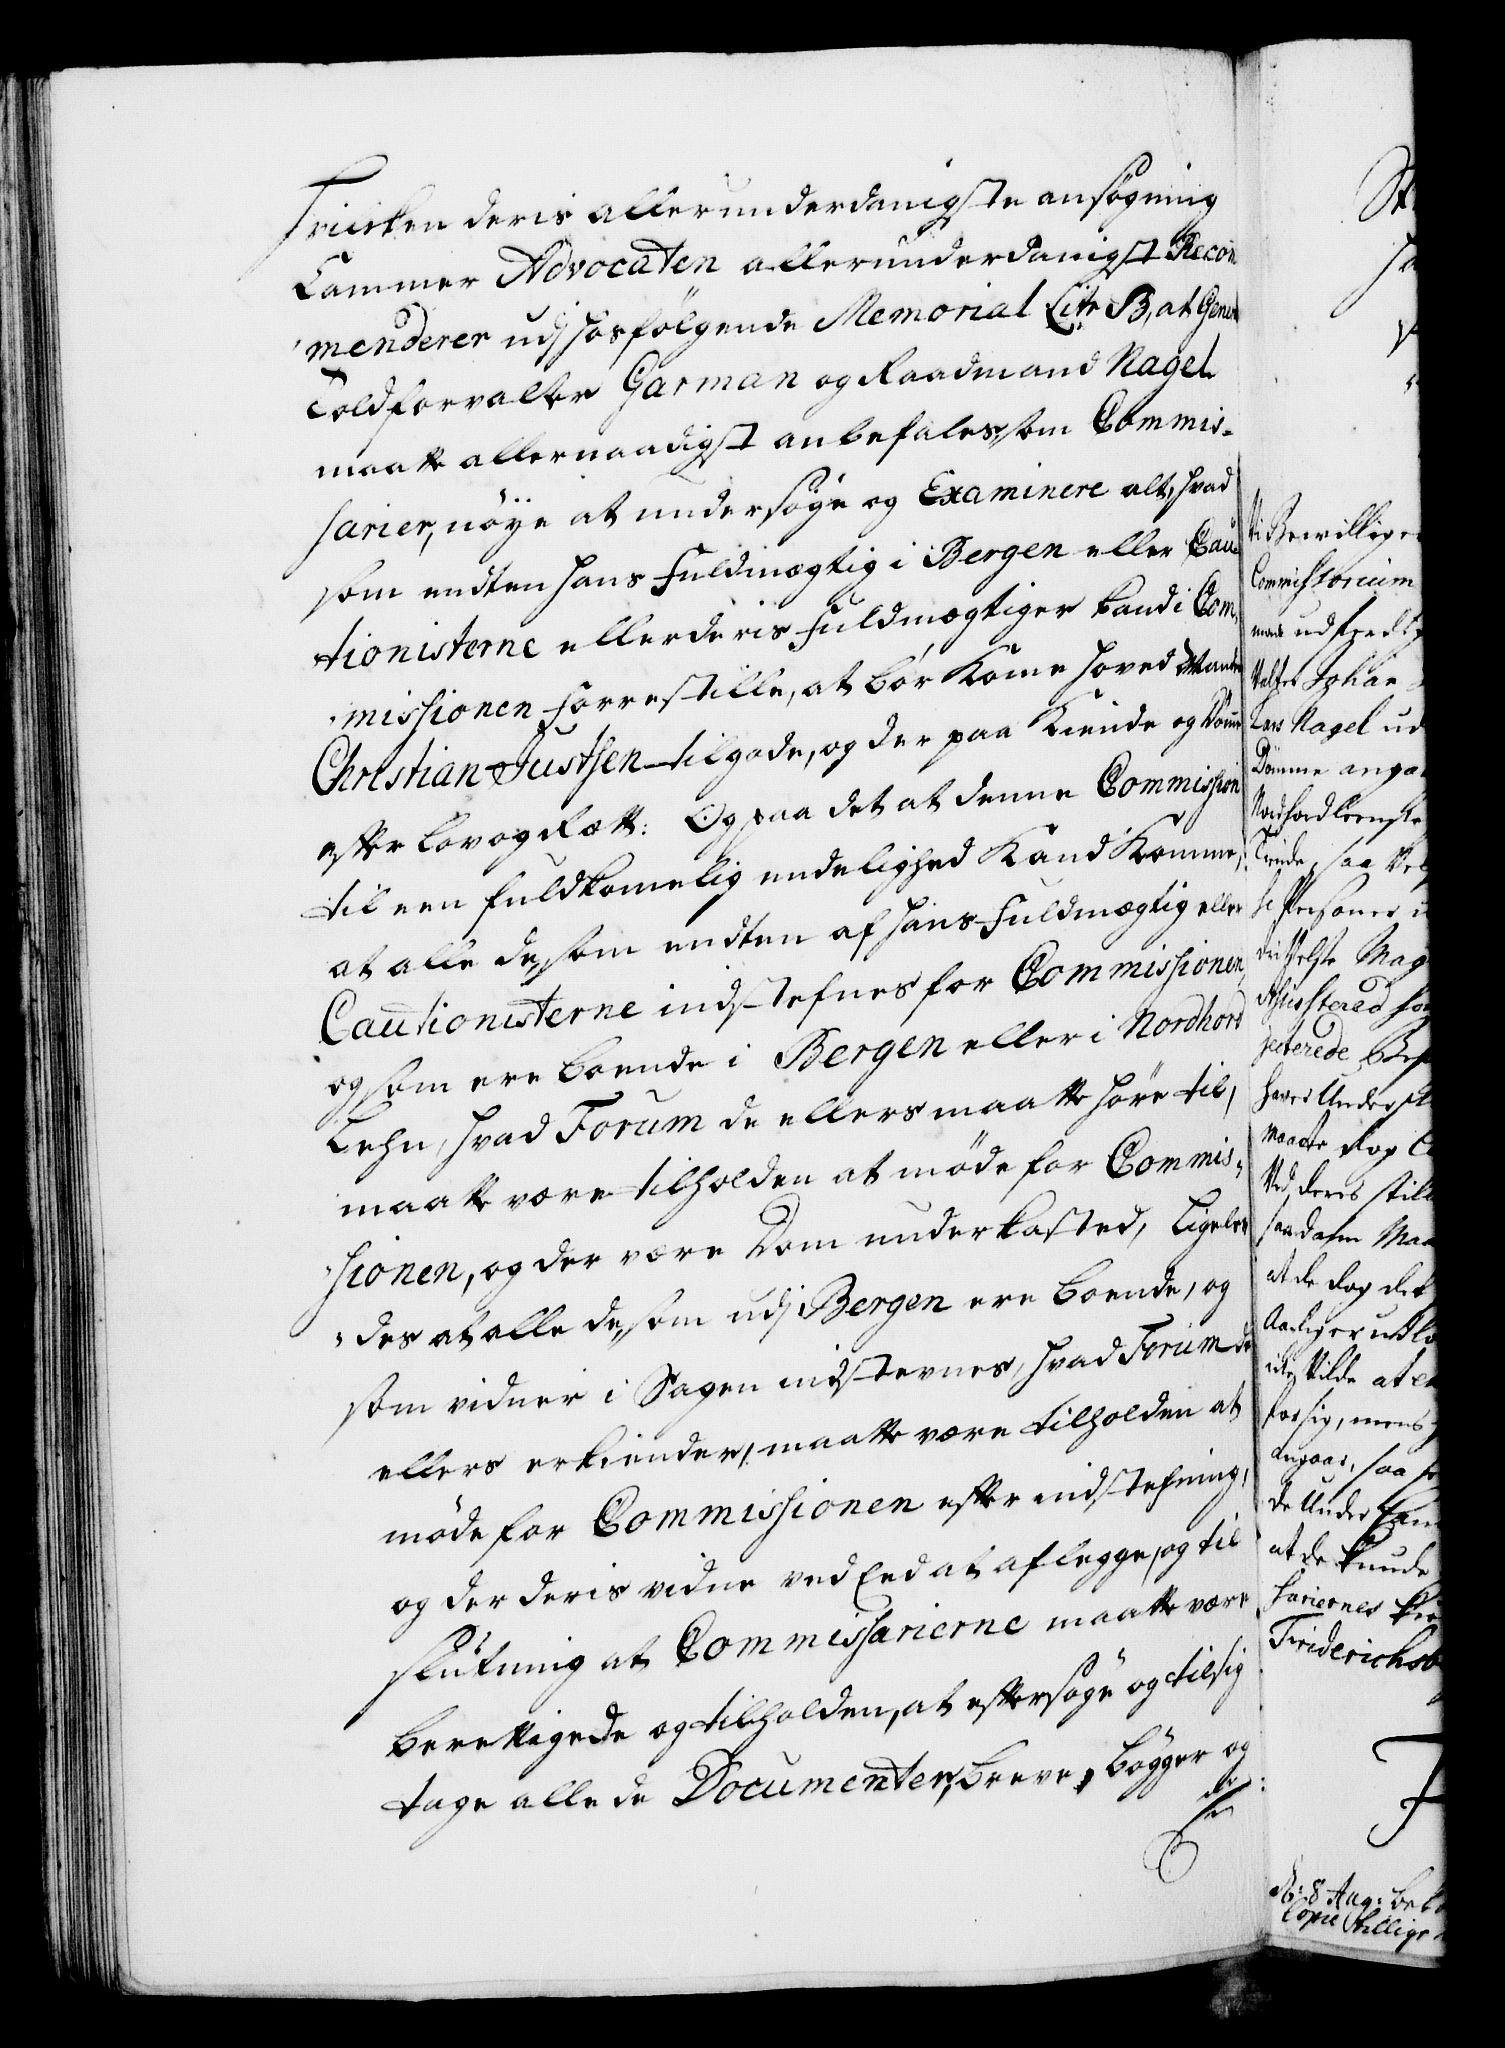 Hvilcken deris allerunderdanigste ansøgning
Cammer Advocaten allerunderdanigst Recom
menderer udj hosfølgende Memorial Litr B, at General
Toldforvalter Garman og Raadmand Nagel
maatte allernaadigst anbefales, som Commis-
sarier, nöye at undersøge og Examinere alt, hvad
som endten hans Fuldmægtig i Bergen eller Cau-
tionisterne eller deris Fuldmægtiger kand i Com
missionen forrestille, at bør Kome hoved Manden
Christian Justsen tilgode, og der paa Kiende og Dömme
efter Lov og Rætt: Og paa det at denne Commission
til een fuldkomelig endelighed Kand Komme,
at alle de, som endten af hans Fuldmægtig eller
Cautionisterne indstefnes for Commissionen,
og som ere boende i Bergen eller i Nordhord
Lehn, hvad Forum de ellers maatte høre til,
maatte være tilholden at møde for Commis-
sionen, og der være Dom underkasted, Ligele-
des at alle de, som udj Bergen ere boende, og
som vidner i Sagen indstevnes, hvad Forum de
ellers erkiender, maatte være tilholden at
møde for Commissionen efter indstefning,
og der deris vidne ved Eed at aflegge, og til
slutning at Commissarierne maatte være
berettigede og tilholden, at eftersøge og til sig
tage alle de Documenter, breve, bøgger og
de
ti Bewilliger
Commissorium
maae udferdig
Valter Johan
Lars Nagel ud
Dömme angaa
Nordhordleenste
Trende, saa Vel
se Personer
Maatte dog
Ved, deres still
saadan Maa
at de dog det
icke Vilde at
for sig, mens
angaar, saa
de Under
at de kunde
sariernes
Friderichsb
d: 8 Aug: bek
Copie